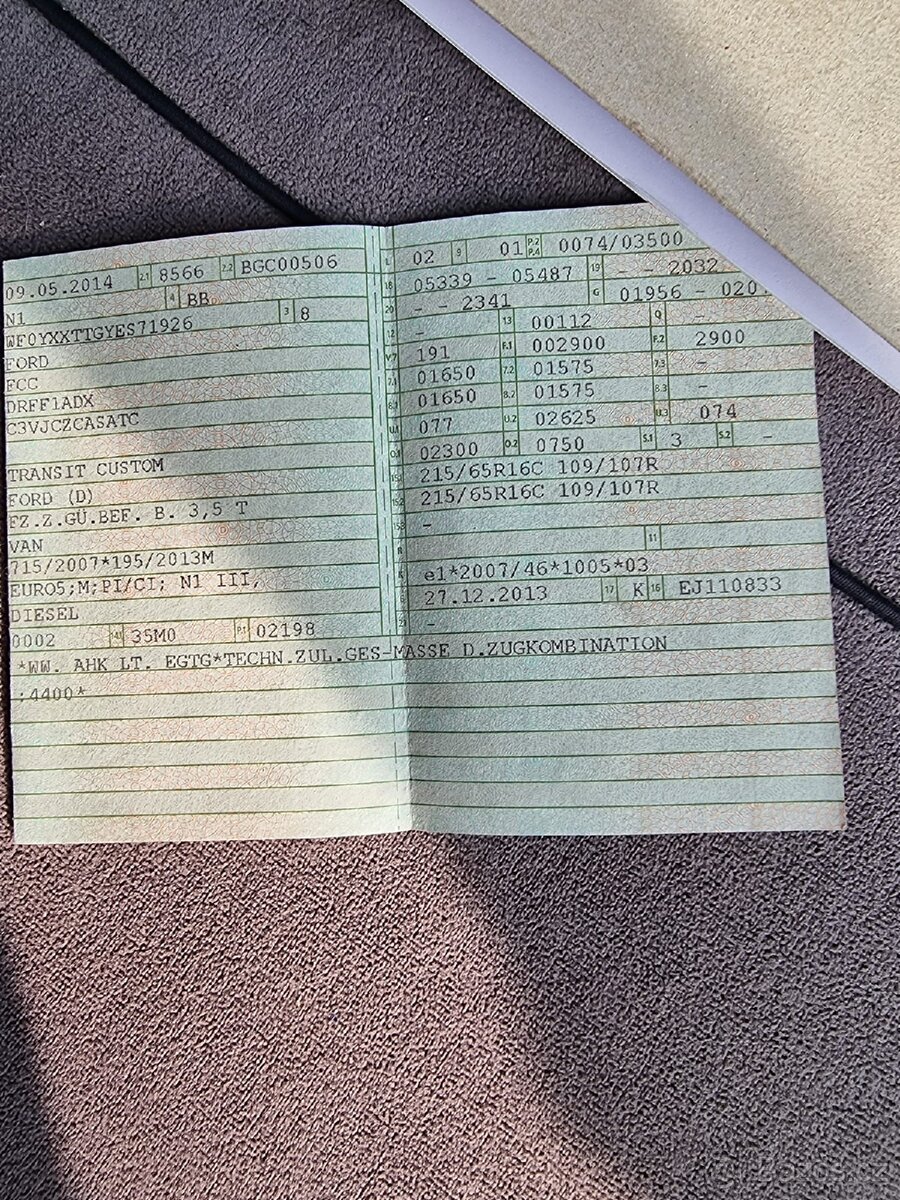 09.05.2014 2.1 8566 2.2 BGC00506
N1 4 BB
WF0YXXTTGYES71926 3 8
FORD
FCC
DRFF1ADX
C3VJCZCASATC
TRANSIT CUSTOM
FORD (D)
FZ.Z.GÜ.BEF. B. 3,5 T
VAN
715/2007*195/2013M
EURO5;M;PI/CI; N1 III,
DIESEL
0002 14.1 35M0 P.1 02198
*WW. AHK LT. EGTG*TECHN.ZUL.GES-MASSE D.ZUGKOMBINATION
:4400*
L 02 9 01 P.2 P.4 0074/03500
18 05339 - 05487 19 - - 2032
20 - - 2341 G 01956 - 020
12 - 13 00112 Q -
V.7 191 F.1 002900 F.2 2900
7.1 01650 7.2 01575 7.3 -
8.1 01650 8.2 01575 8.3 -
U.1 077 U.2 02625 U.3 074
O.1 02300 O.2 0750 S.1 3 S.2 -
15.1 215/65R16C 109/107R
15.2 215/65R16C 109/107R
15.3 -
R 11
K e1*2007/46*1005*03
27.12.2013 17 K 16 EJ110833
21 -